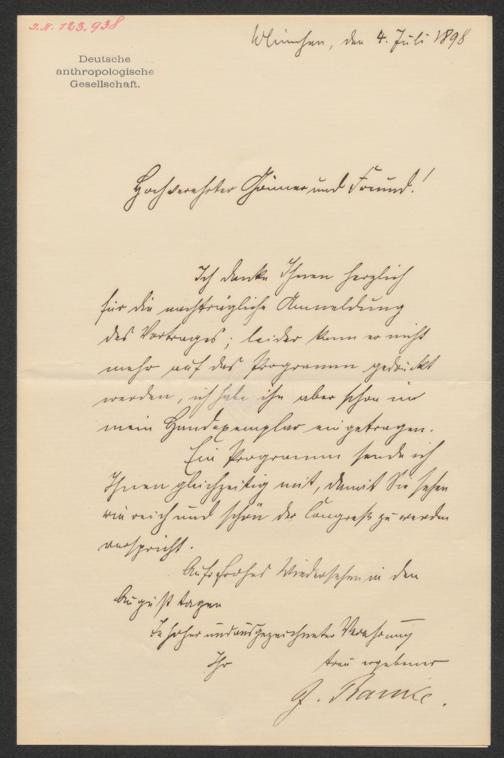 J.N. 123.938
München, den 4. Juli 1898
Deutsche
anthropologische
Gesellschaft.
Hochverehrter Gönner und Freund!
Ich danke Ihnen herzlich
für die nachträgliche Anmeldung
des Vortrages; leider kann er nicht
mehr auf das Programm gedruckt
werden, ich habe ihn aber schon in
mein Handexemplar eingetragen.
Ein Programm sende ich
Ihnen gleichzeitig mit, damit Sie sehen
wie reich und schön der Congreß zu werden
verspricht.
Aufs frohes Wiedersehen in den
Augusttagen
In hoher und ausgezeichneter Verehrung
Ihr treu ergebener
J. Ranke.